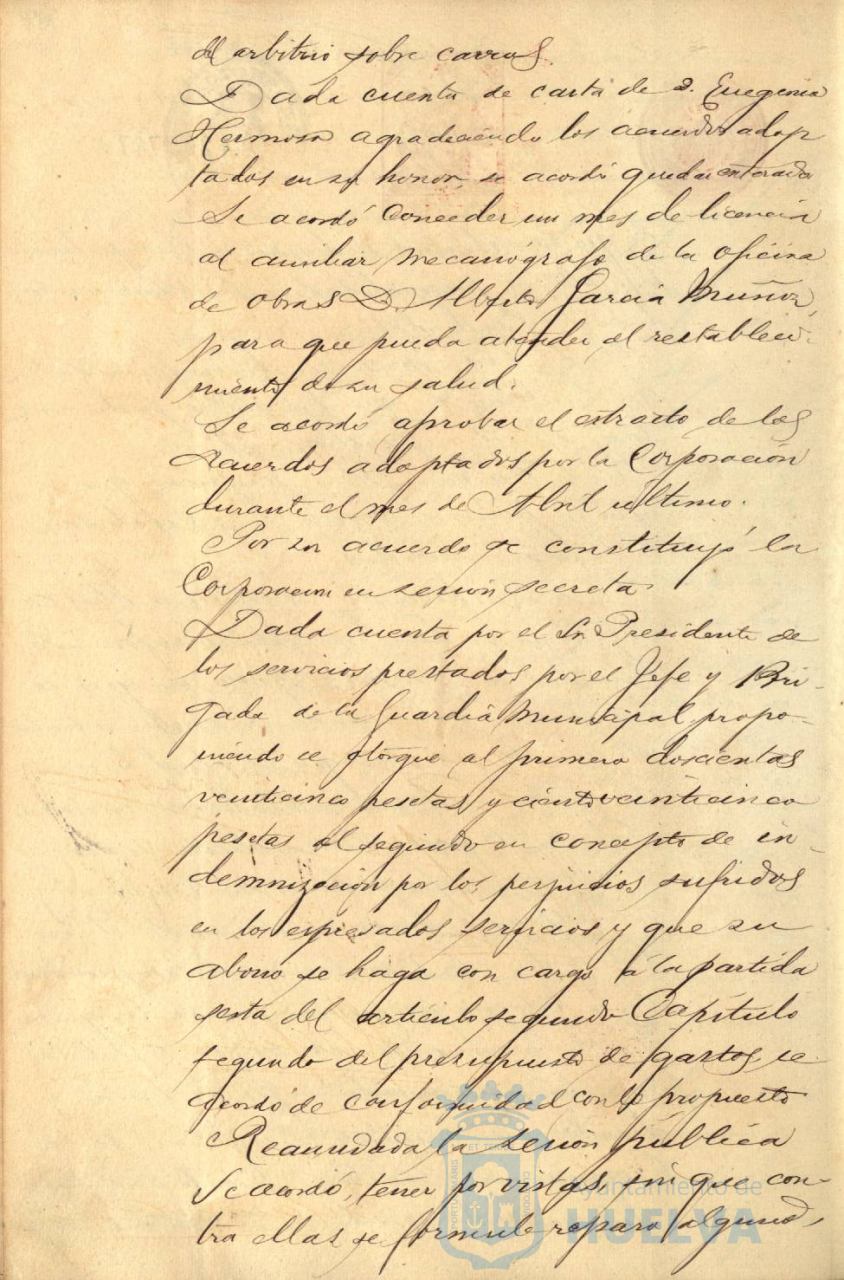 del arbitrio sobre carros.
Dada cuenta de carta de D. Eugenio
Hermoso agradeciendo los acuerdos adop
tados en su honor, se acordó quedar enterado
Se acordó conceder un mes de licencia
al auxiliar mecanógrafo de la oficina
de obras D. Alberto García Muñoz,
para que pueda atender al restableci-
miento de su salud.
Se acordó aprobar el extracto de los
acuerdos adoptados por la Corporación
durante el mes de Abril último.
Por su acuerdo se constituyó la
Corporación en sesión secreta.
Dada cuenta por el Sr. Presidente de
los servicios prestados por el Jefe y Bri-
gada de la Guardia Municipal, propo-
niendo se otorgue al primero doscientas
veinticinco pesetas y ciento veinticinco
pesetas al segundo en concepto de in-
demnización por los perjuicios sufridos
en los expresados servicios y que su
abono se haga con cargo á la partida
sesta del artículo segundo Capítulo
segundo del presupuesto de gastos se
acordó de conformidad con lo propuesto
Reanudada la sesión pública
se acordó, tener por vistas, sin que con-
tra ellas se formule reparo alguno,
Ayuntamiento de
HUELVA